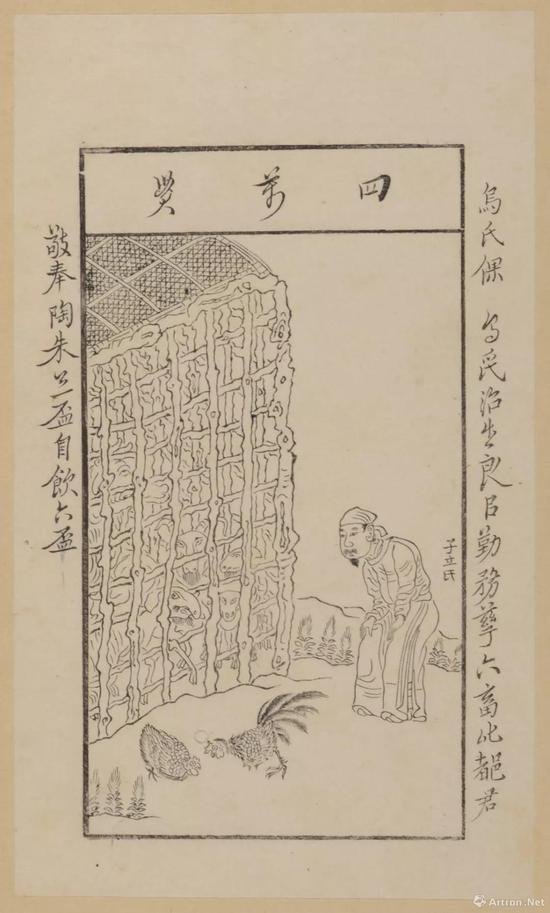 四萬貫
烏氏倮 烏氏治生良㠯勤務孳六畜比君
子立氏
敬奉陶朱公一盃自飲六盃
Artron.Net